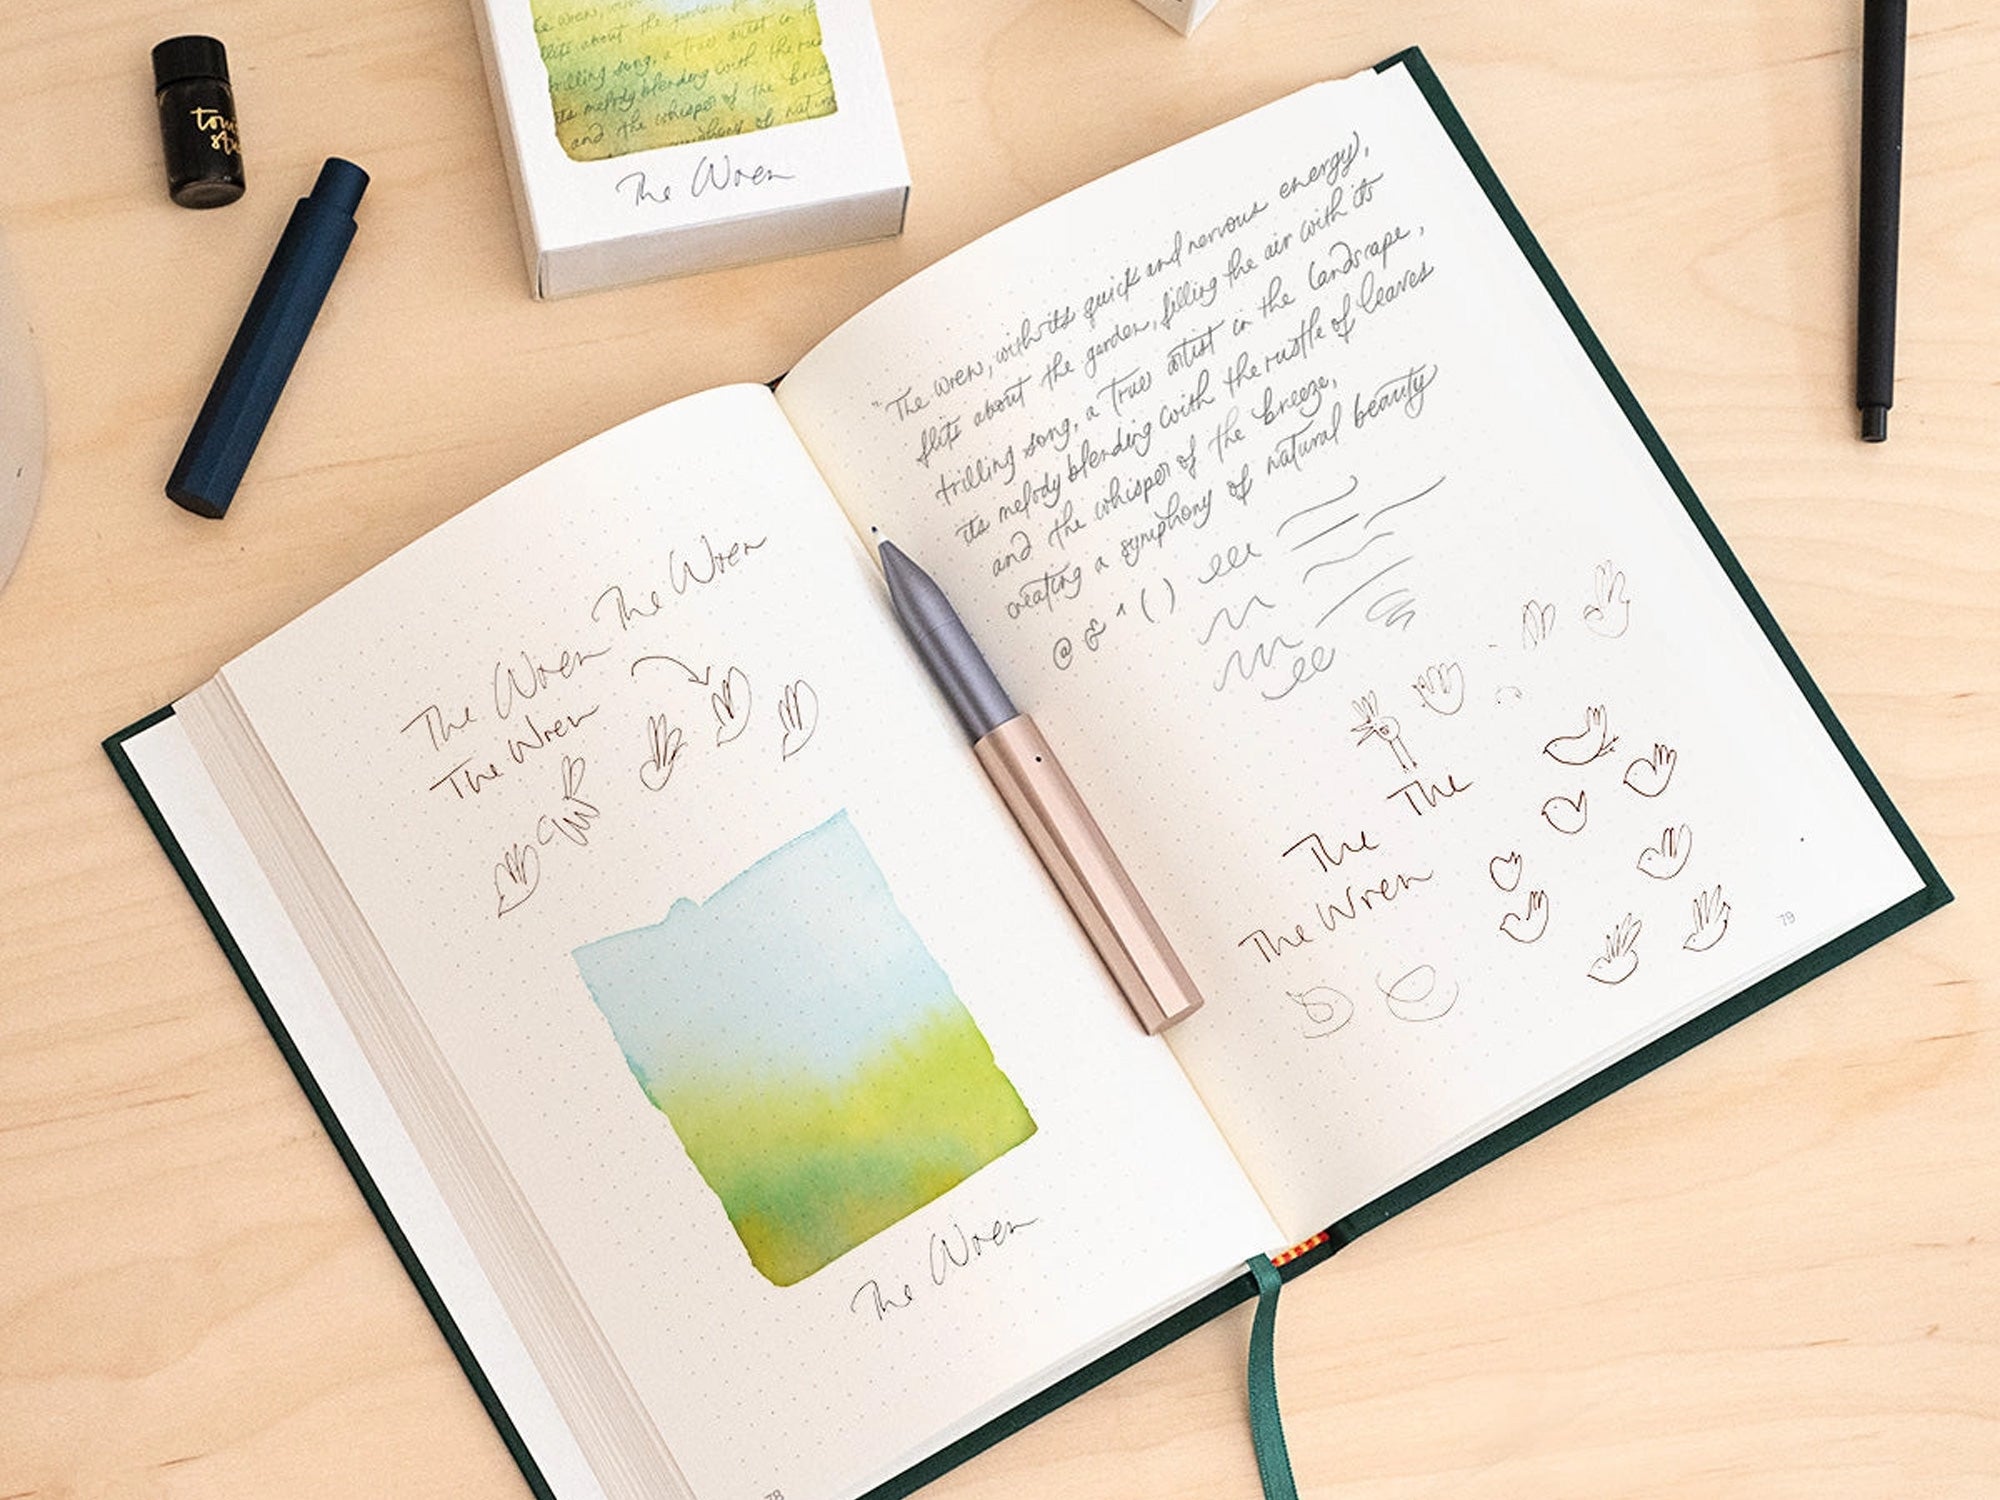 The Wren, with
flits about the garden,
trilling song, a true artist in th
its melody blending with the rus
and the whisper of the breez
symphony of natur
The Wren
The Wren The Wren
The Wren
The Wren
78
"The wren, with its quick and nervous energy,
flits about the garden, filling the air with its
trilling song, a true artist in the landscape,
its melody blending with the rustle of leaves
and the whisper of the breeze,
creating a symphony of natural beauty
@ & ^ ( )
The
The
The Wren
79